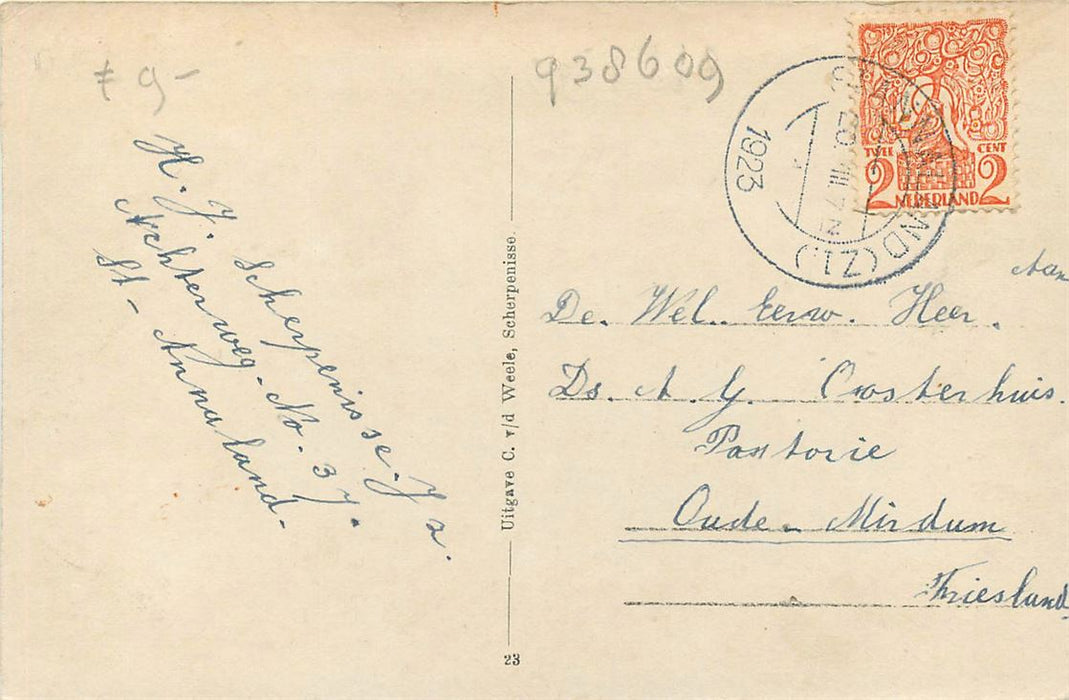 9-
938609
TWEE CENT
2 2
NEDERLAND
1923
H. J. Scherpenisse. Jz.
Achterweg. No. 37.
St- Annaland.
Uitgave C. v/d Weele, Scherpenisse.
23
Aan
De. Wel. Eerw. Heer.
Ds. A. G. Oosterhuis.
Pastorie
Oude- Mirdum
Friesland